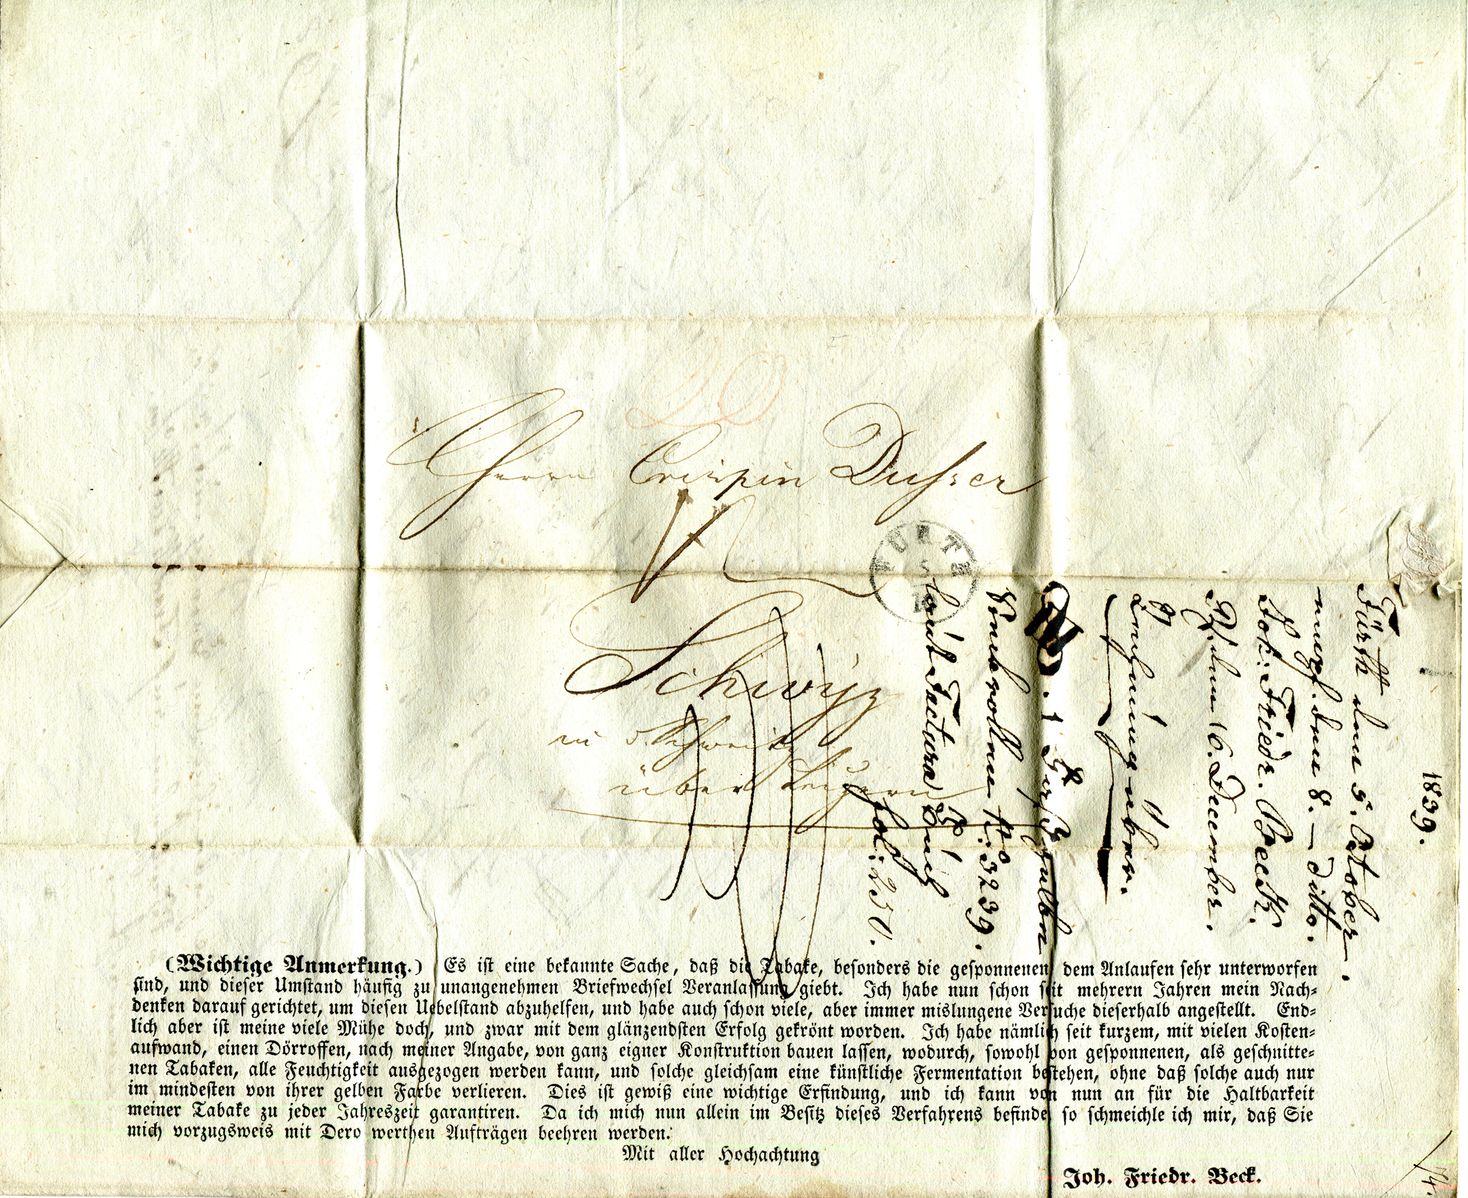 Herrn Crispin Dusser
FÜRTH
Schwÿz
in d. Schweitz
über Luzern
1839.
Fürth den 5. October.
empf. den 8. – ditto.
Joh: Friedr. Beck.
den 16. December.
1
No: 3239.
laut Factura Buch
fol: 250.
(Wichtige Anmerkung.) Es ist eine bekannte Sache, daß die Tabake, besonders die gesponnenen dem Anlaufen sehr unterworfen
sind, und dieser Umstand häufig zu unangenehmen Briefwechsel Veranlassung giebt. Ich habe nun schon seit mehrern Jahren mein Nach-
denken darauf gerichtet, um diesen Uebelstand abzuhelfen, und habe auch schon viele, aber immer mislungene Versuche dieserhalb angestellt. End-
lich aber ist meine viele Mühe doch, und zwar mit dem glänzendsten Erfolg gekrönt worden. Ich habe nämlich seit kurzem, mit vielen Kosten-
aufwand, einen Dörroffen, nach meiner Angabe, von ganz eigner Konstruktion bauen lassen, wodurch, sowohl von gesponnenen, als geschnitte-
nen Tabaken, alle Feuchtigkeit ausgezogen werden kann, und solche gleichsam eine künstliche Fermentation bestehen, ohne daß solche auch nur
im mindesten von ihrer gelben Farbe verlieren. Dies ist gewiß eine wichtige Erfindung, und ich kann von nun an für die Haltbarkeit
meiner Tabake zu jeder Jahreszeit garantiren. Da ich mich nun allein im Besitz dieses Verfahrens befinde, so schmeichle ich mir, daß Sie
mich vorzugsweis mit Dero werthen Aufträgen beehren werden.
Mit aller Hochachtung
Joh. Friedr. Beck.